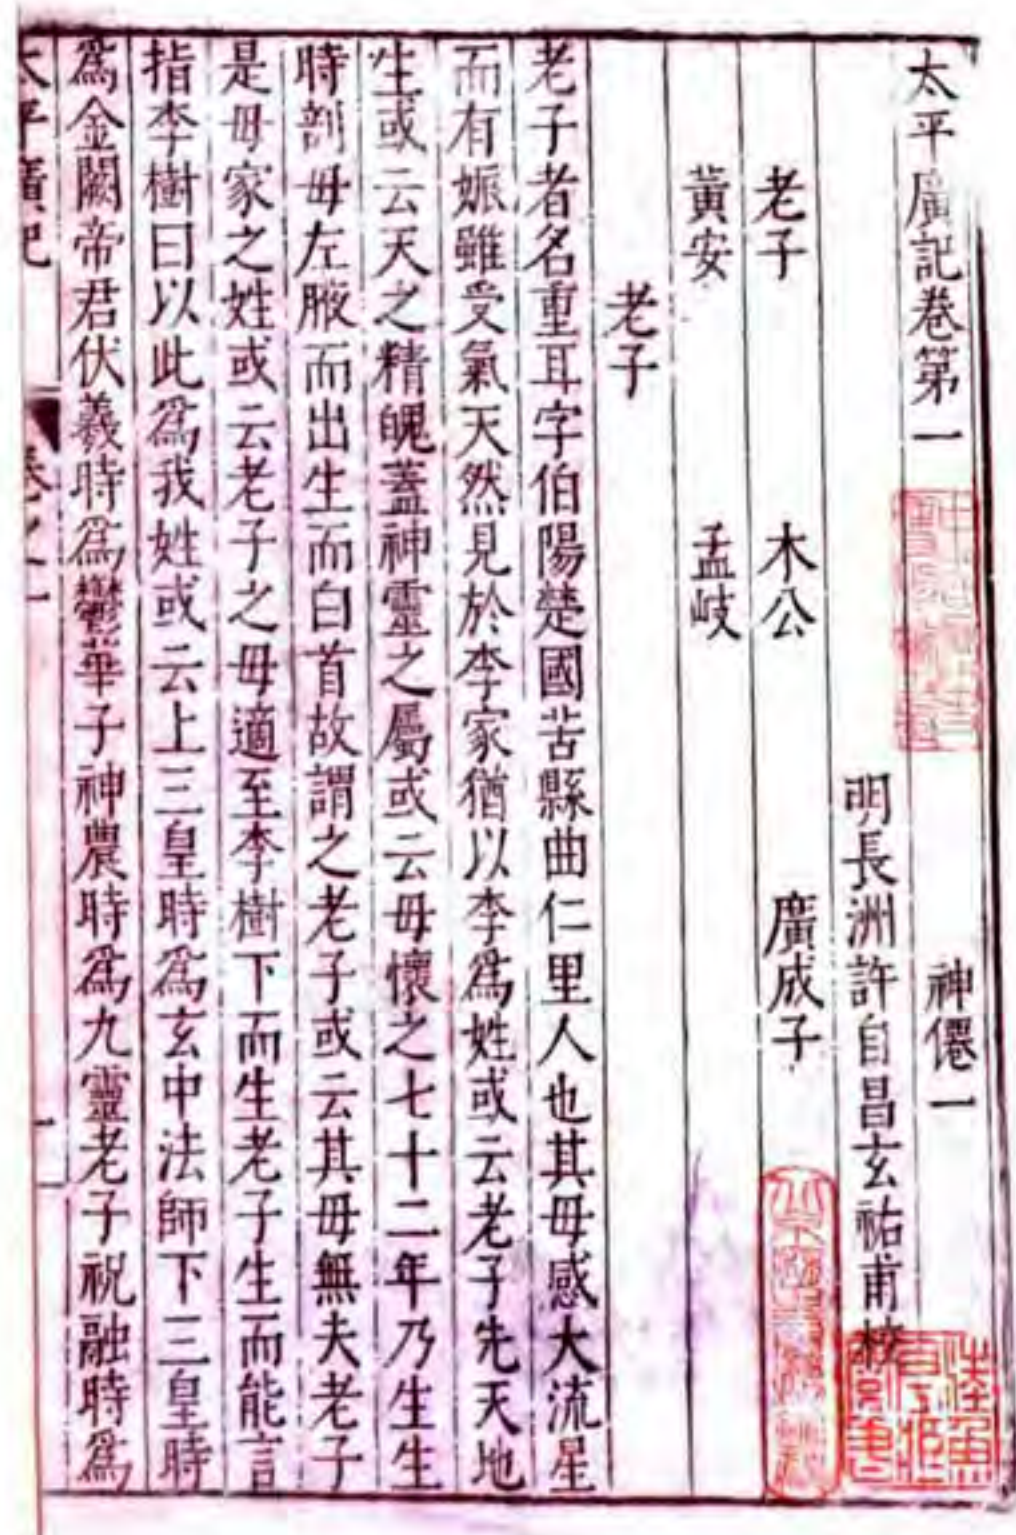 太平廣記卷第一 神僊一
明長洲許自昌玄祐甫校
老子 木公 廣成子
黃安 孟岐
老子
老子者名重耳字伯陽楚國苦縣曲仁里人也其母感大流星
而有娠雖受氣天然見於李家猶以李爲姓或云老子先天地
生或云天之精魄蓋神靈之屬或云母懷之七十二年乃生生
時剖母左腋而出生而白首故謂之老子或云其母無夫老子
是母家之姓或云老子之母適至李樹下而生老子生而能言
指李樹曰以此爲我姓或云上三皇時爲玄中法師下三皇時
爲金闕帝君伏羲時爲鬱華子神農時爲九靈老子祝融時爲
太平廣記 卷之一 一